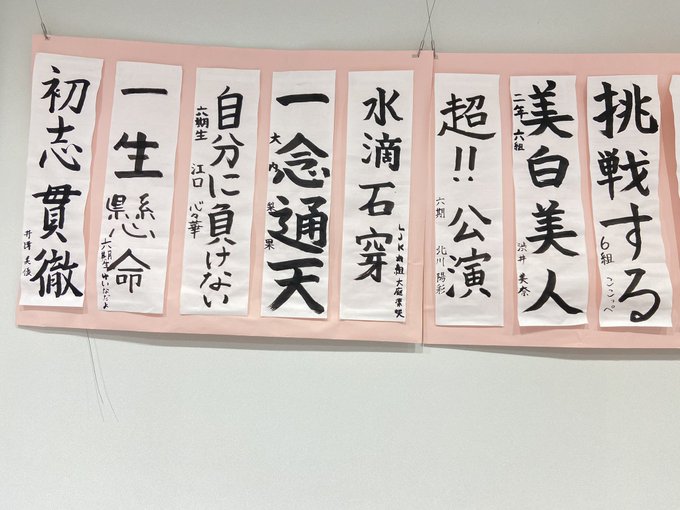 挑戦する
6組 ここっぺ
美白美人
二年六組
渋井美奈
超!!公演
六期 北川陽彩
水滴石穿
一念通天
大内梨果
自分に負けない
六期生
江口心々華
一生懸命
六期生ゆいなだよ
初志貫徹
井澤美優